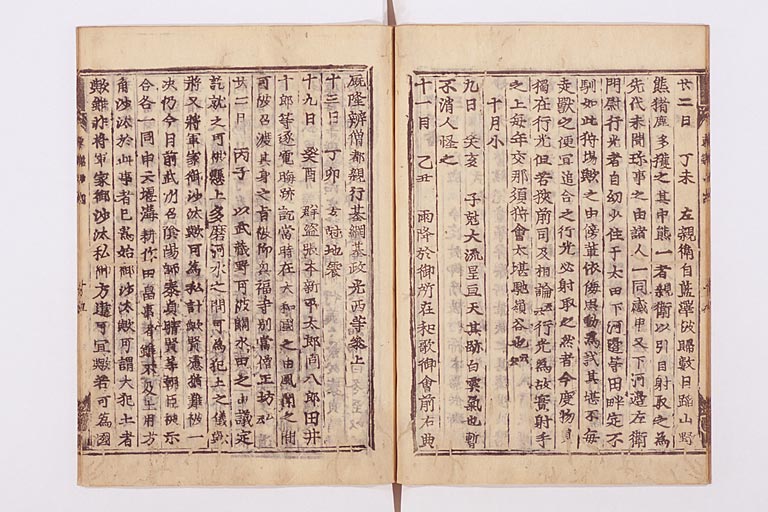 廿二日 丁未 左親衛自藍澤被歸數日踏山野
熊猪鹿多獲之其中熊一者親衛以引目射取之爲
先代未聞珎事之由諸人一同感申又下河邊左衛
門尉行光者自幼少住于太田下河邊等田畔定不
馴如此狩塲歟之由傍輩依侮思動爲試其堪不每
走獸之便宜追合之行光必射取之然者今度物
獨在行光但若狹前司及相論 行光爲故實射手
之上每年交那須狩會太堪馳嶺谷也
十月小
九日 癸亥 子尅大流星亘天其跡白雲氣也暫
不消人怪之
十一月 乙丑 雨降於御所在和歌御會前右典
厩隆辨僧都親行基綱基政光西等參上
十三日 丁卯 地震
十九日 癸酉 群盜張本新平太郎同八郎田井
十郎等逐電晦跡訖當時在大和國之由風聞之間
可被召渡其身之旨被仰興福寺別當僧正坊
廿二日 丙子 以武藏野可被開水田之由議定
訖就之可被懸上多磨河水之間可爲犯土之儀歟
將又將軍家御沙汰歟可爲私計歟賢慮猶難被一
决仍今日前武州召陰陽師泰貞晴賢等朝臣被示
合各一同申云堰溝耕作田畠事雖不及土用方
角沙汰於此事者已爲始御沙汰歟可謂大犯土者
歟雖非將軍家御沙汰私 方違可宜歟若可爲國